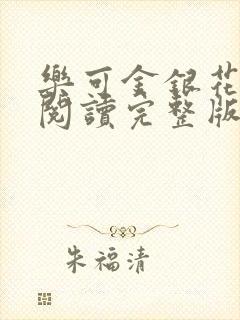 樂可金銀花
閱讀完整版
朱福清